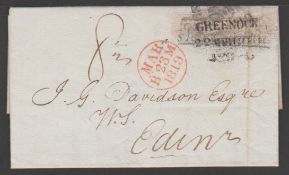 GREENOCK
8
MAR
B 23 M
1819
J. G. Davidson Esqre
W.S.
Edinr